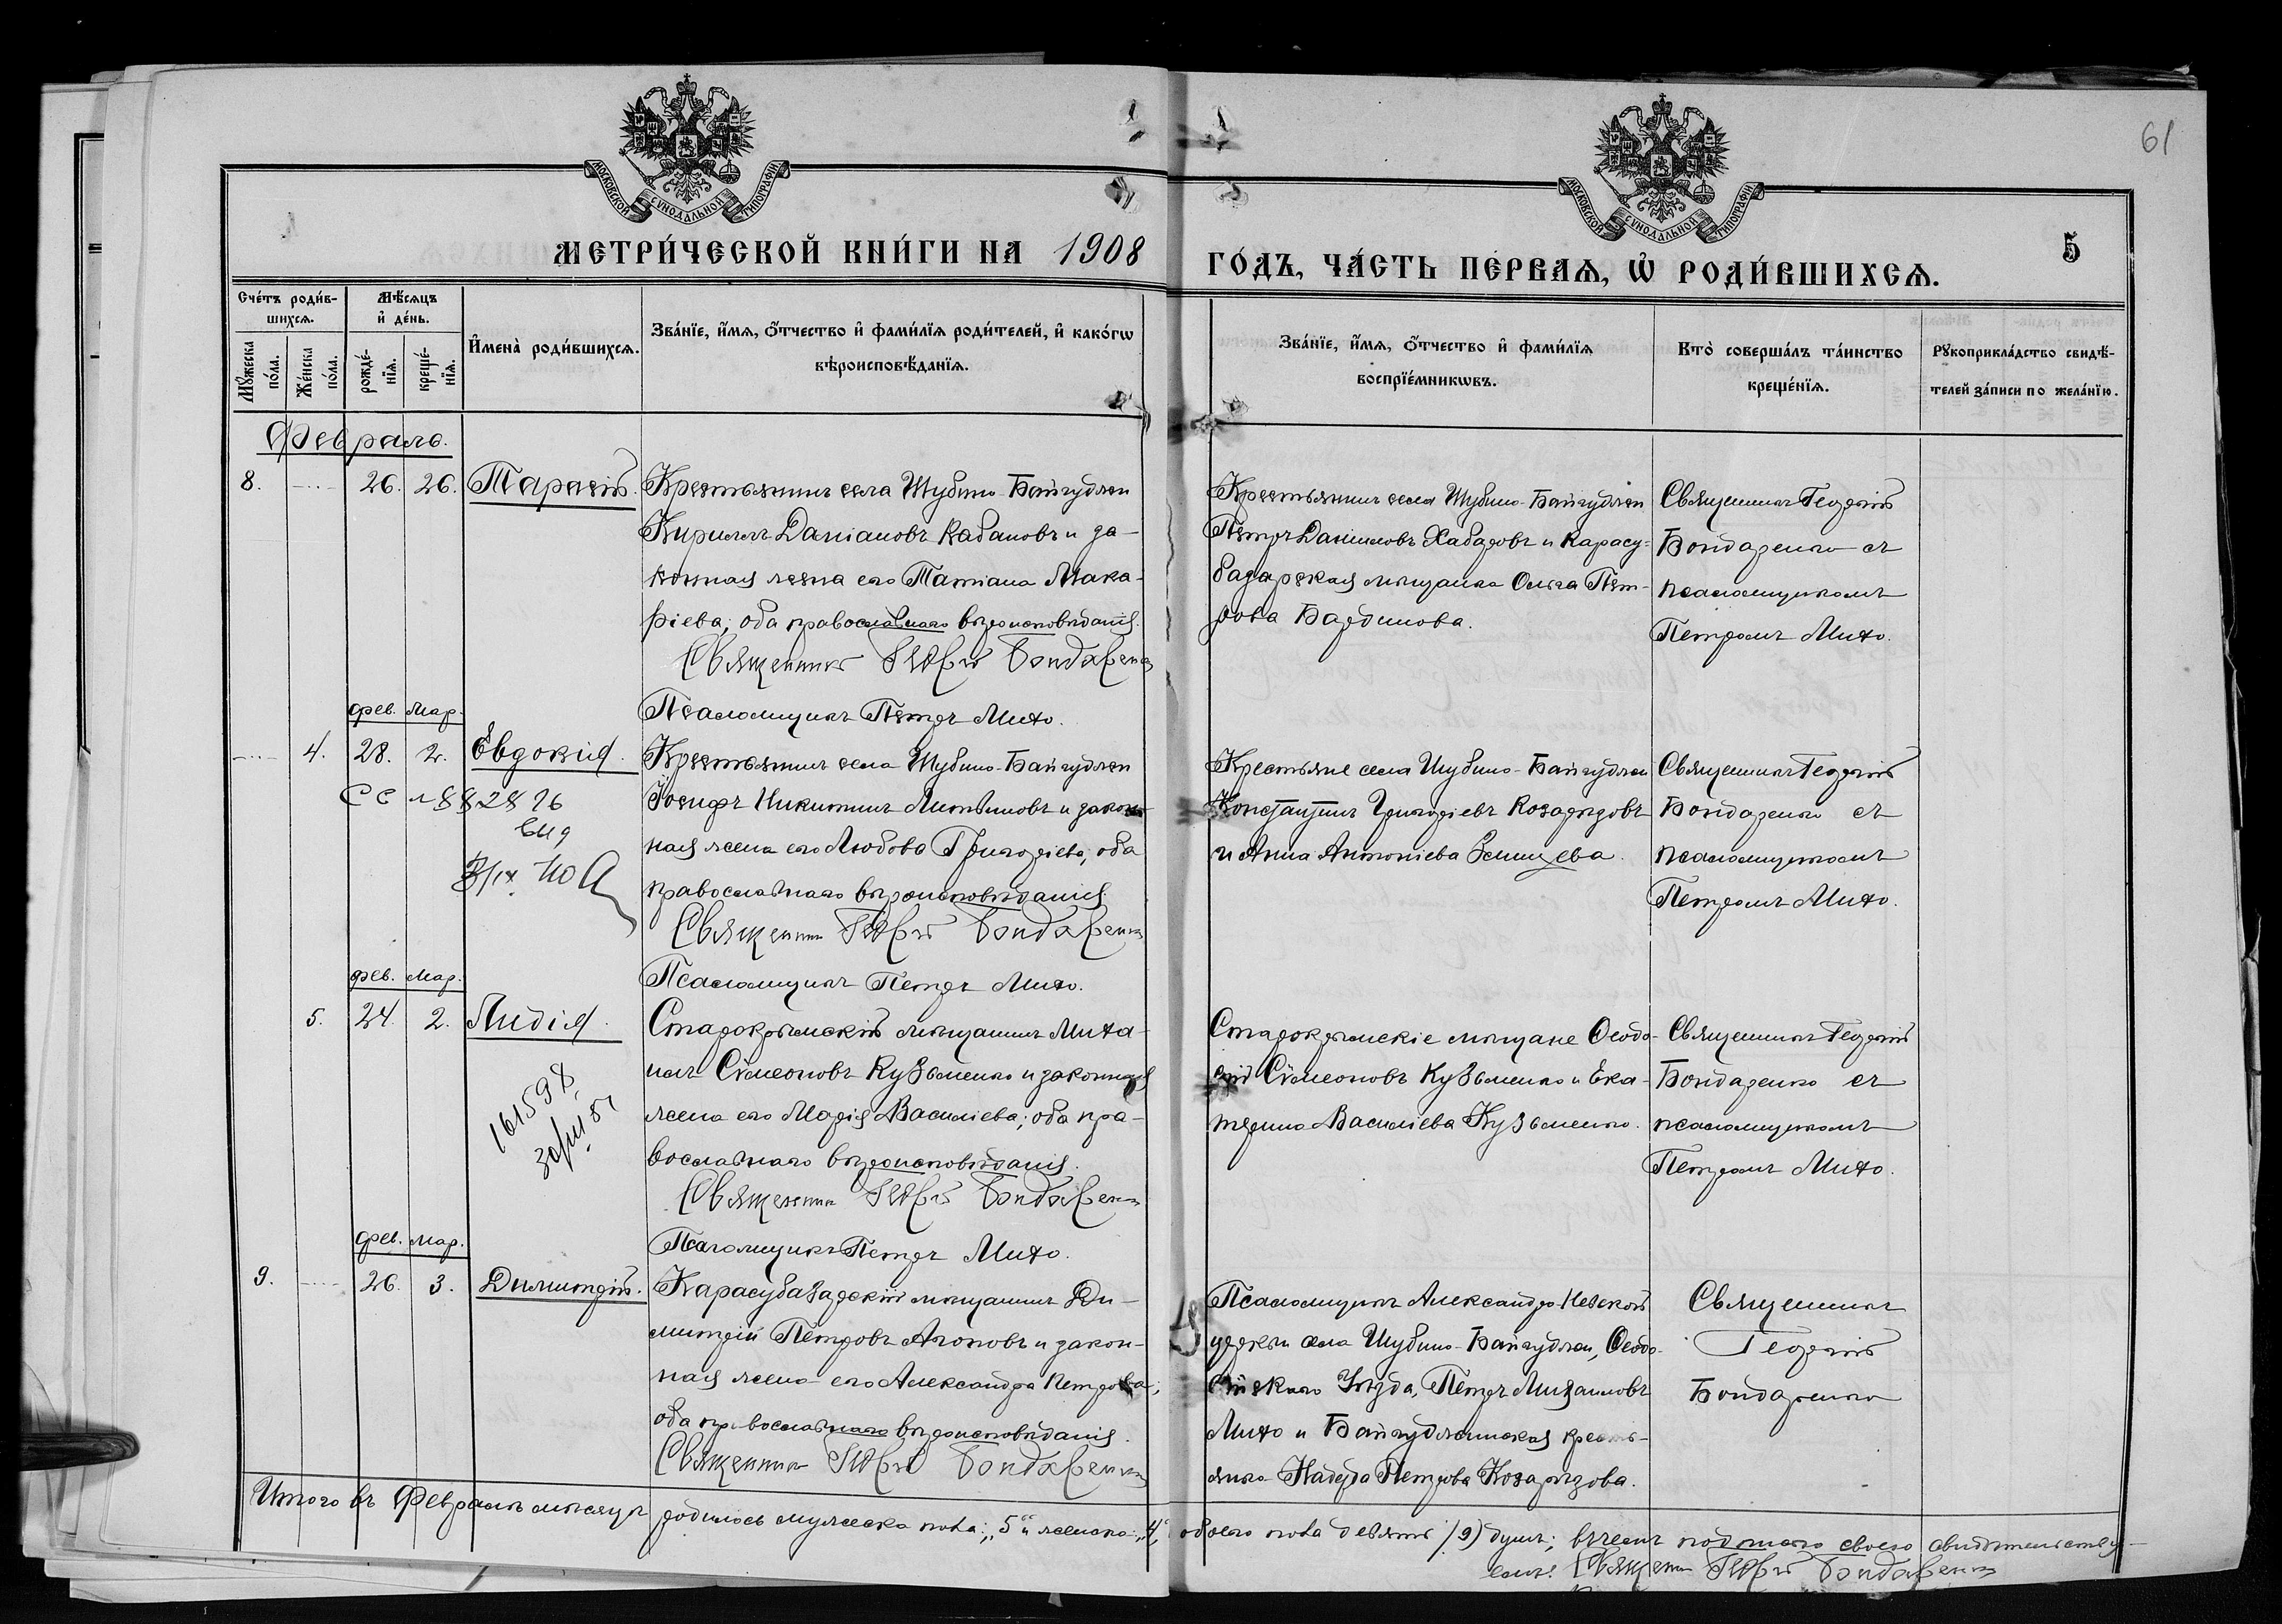 61
МОСКОВСКОЙ СУНОДАЛЬНОЙ ТИПОГРАФІИ
МОСКОВСКОЙ СУНОДАЛЬНОЙ ТИПОГРАФІИ
МЕТРИ́ЧЕСКОЙ КНИ́ГИ НА 1908
ГО́ДЪ, ЧА́СТЬ ПЕ́РВАѦ, Ѿ РОДИ́ВШИХСѦ.
5
Сче́тъ роди́в-
шихсѧ.
Мѣ́сѧцъ
и҆ де́нь.
Мꙋ́жеска по́ла.
Же́нска по́ла.
рожде́-
нїѧ.
креще́-
нїѧ.
И҆мена̀ роди́вшихсѧ.
Зва́нїе, и҆́мѧ, ѻ҆́тчество и҆ фами́лїѧ роди́телей, и҆ како́гѡ
вѣроисповѣ́данїѧ.
Зва́нїе, и҆́мѧ, ѻ҆́тчество и҆ фами́лїѧ
воспрїе́мникѡвъ.
Кто̀ соверша́лъ та́инство
креще́нїѧ.
Рꙋкоприкла́дство свидѣ́-
телей за́писи по жела́нїю.
Февраль.
8. 26. 26. Тарасій.
Крестьянинъ села Шубино-Байгуджи
Кириллъ Даніановъ Кабановъ и за-
конная жена его Татіана Мака-
ріева; оба православнаго вѣроисповѣданія.
Священникъ Георгій Бондаренко
Псаломщикъ Петръ Михо.
Крестьянинъ села Шубино-Байгуджи
Петръ Даниловъ Хабаровъ и Карасу-
базарская мѣщанка Ольга Пет-
рова Бардинова.
Священникъ Георгій
Бондаренко съ
псаломщикомъ
Петромъ Михо.
фев. мар.
4. 28. 2. Евдокія.
Крестьянинъ села Шубино-Байгуджи
Іосифъ Никитинъ Литвиновъ и закон-
ная жена его Любовь Григоріева; оба
православнаго вѣроисповѣданія.
Священникъ Георгій Бондаренко
Псаломщикъ Петръ Михо.
Крестьяне села Шубино-Байгуджи
Константинъ Григоріевъ Козарѣзовъ
и Анна Антоніева
Священникъ Георгій
Бондаренко съ
псаломщикомъ
Петромъ Михо.
фев. мар.
5. 24. 2. Лидія.
161598
Старокрымскій мѣщанинъ Миха-
илъ Сѵмеоновъ Кузьменко и законная
жена его Марія Васильева; оба пра-
вославнаго вѣроисповѣданія.
Священникъ Георгій Бондаренко
Псаломщикъ Петръ Михо.
Старокрымскіе мѣщане Ѳеодо-
сій Сѵмеоновъ Кузьменко и Ека-
терина Васильева Кузьменко.
Священникъ Георгій
Бондаренко съ
псаломщикомъ
Петромъ Михо.
фев. мар.
9. 26. 3. Димитрій.
Карасубазарскій мѣщанинъ Ди-
митрій Петровъ Агоповъ и закон-
ная жена его Александра Петрова;
оба православнаго вѣроисповѣданія.
Священникъ Георгій Бондаренко
Псаломщикъ Александро-Невской
церкви села Шубино-Байгуджи, Ѳеодо-
сійскаго Уѣзда, Петръ Михаиловъ
Михо и Байгуджинская кресть-
янка Надежда Петрова Козарѣзова.
Священникъ
Георгій
Бондаренко
Итого въ Февралѣ мѣсяцѣ родилось мужеска пола: „5" и женска: „4", обоего пола девять (9) душъ; въ чемъ подписью своею свидѣтельству-
емъ: Священникъ Георгій Бондаренко